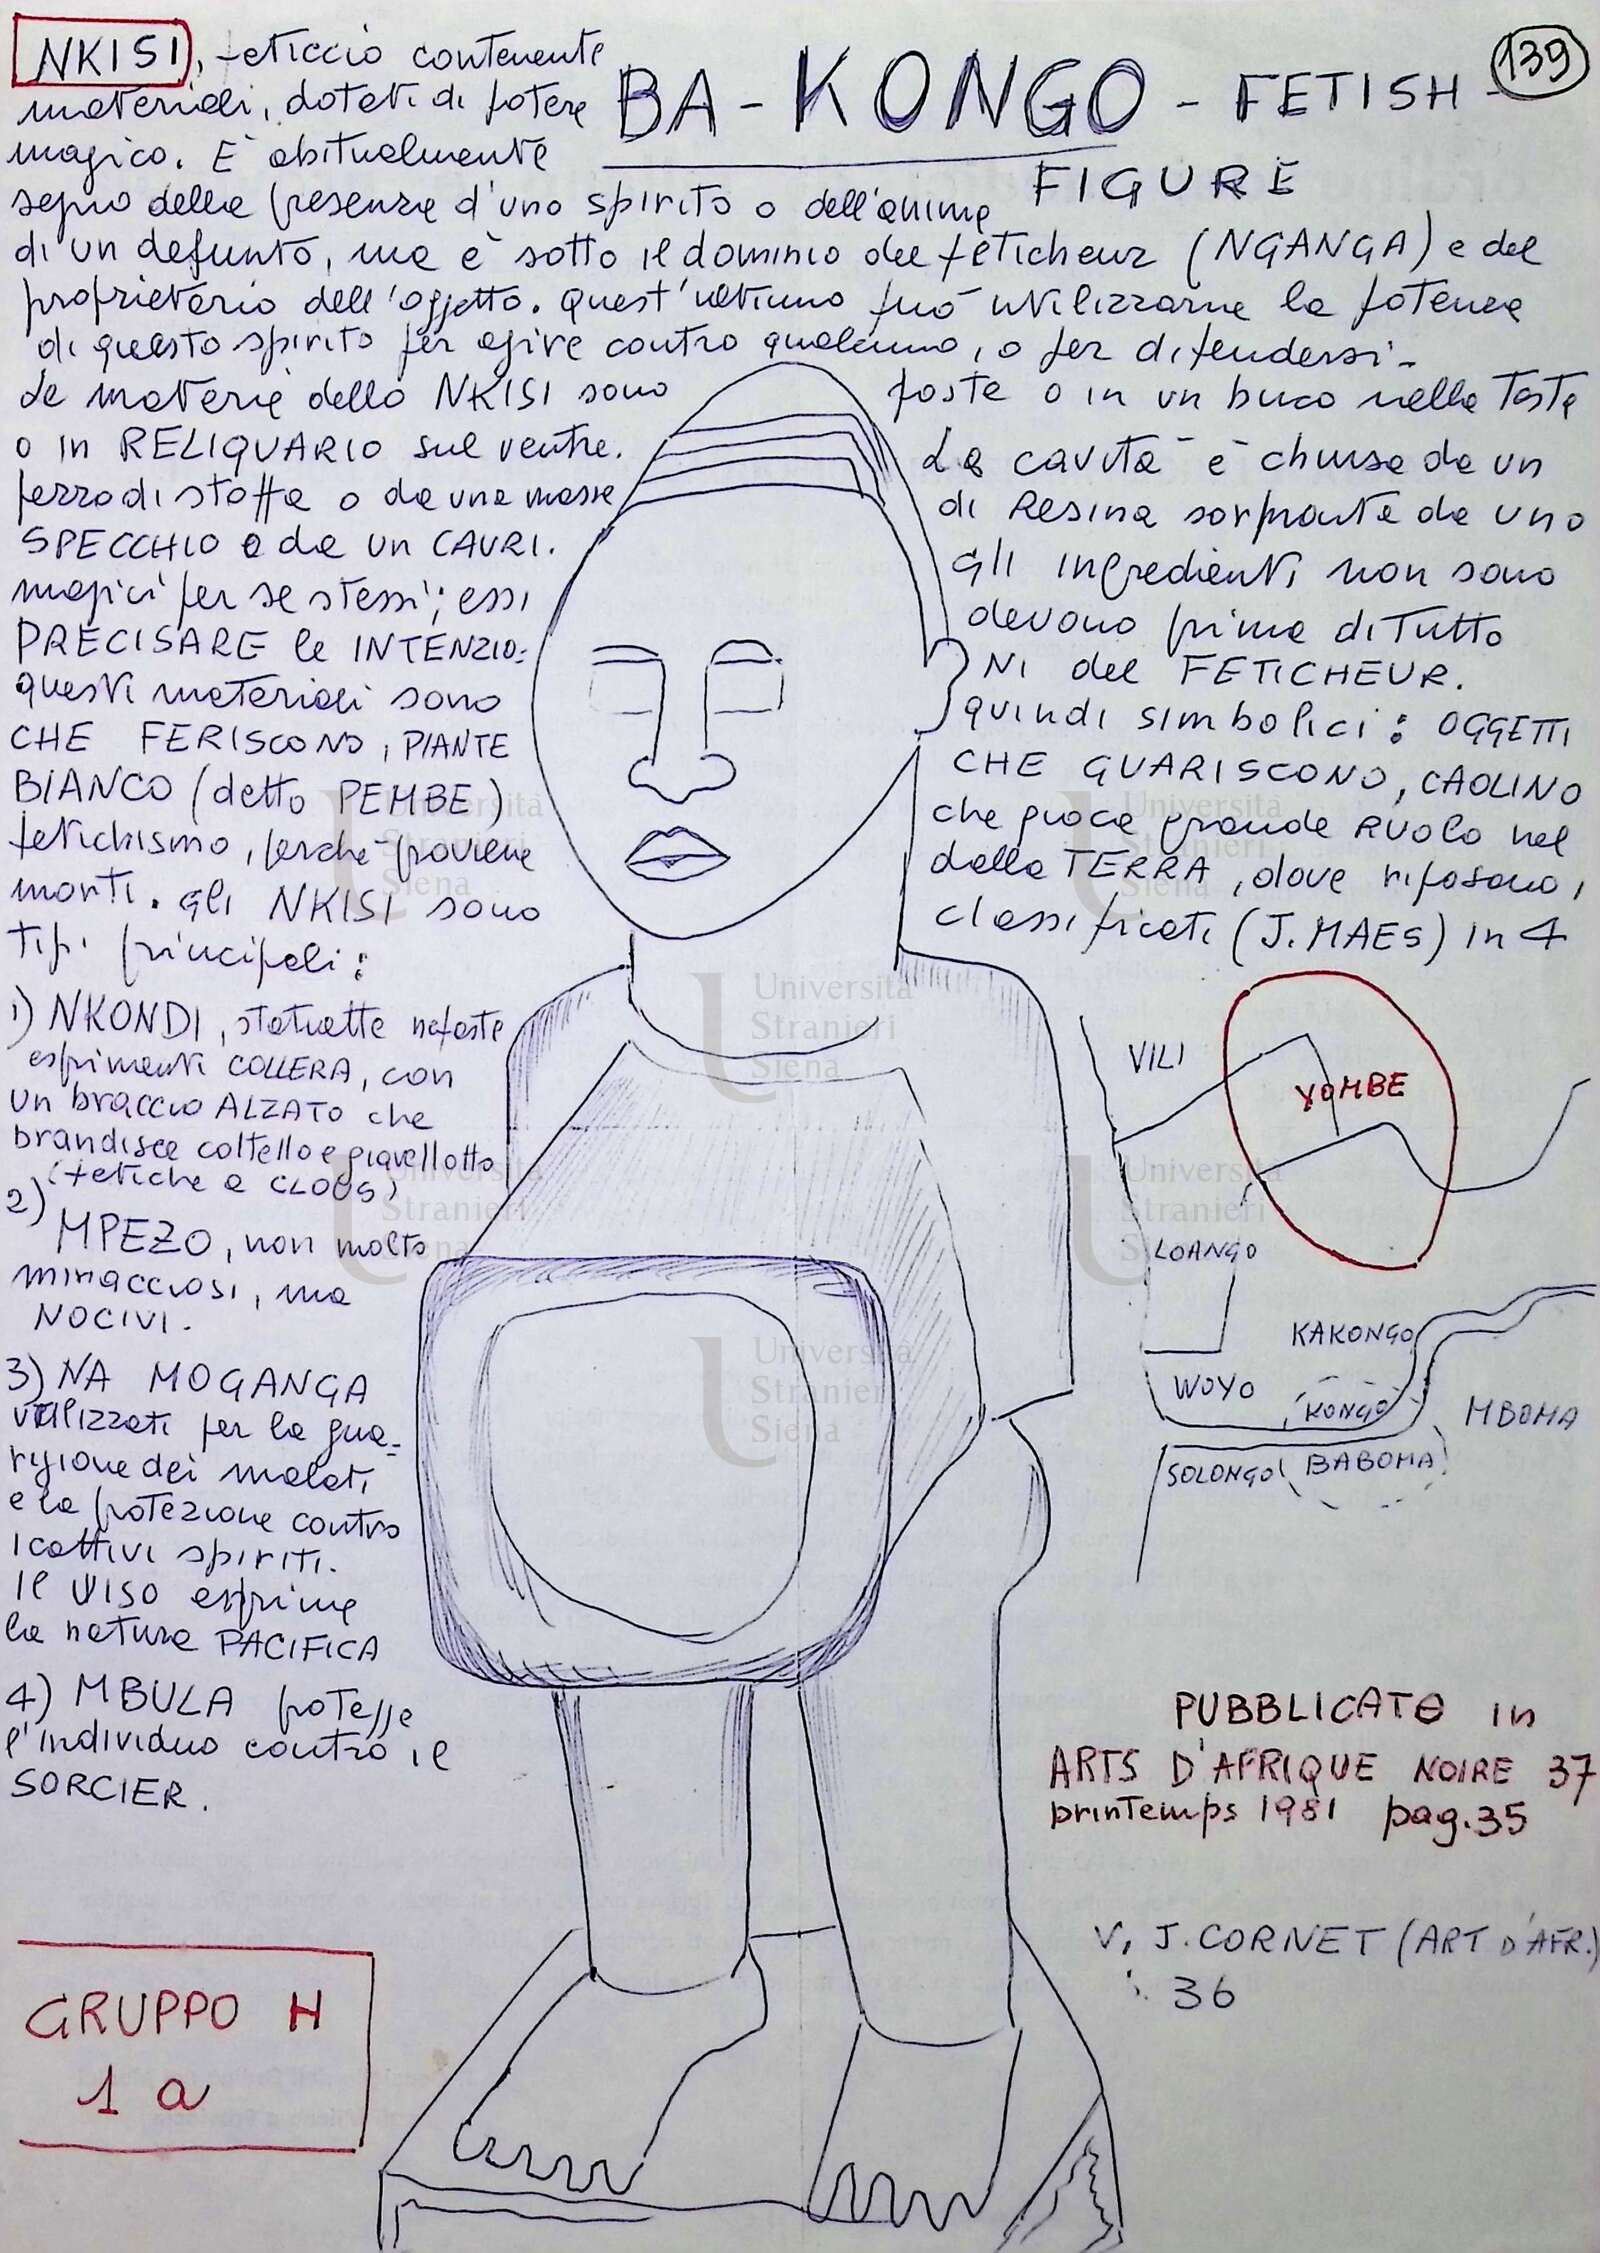 139
BA-KONGO - FETISH -
FIGURE
NKISI, feticcio contenente
materiali, dotati di potere
magico. E' abitualmente
segno della presenza d'uno spirito o dell'anima
di un defunto, ma è sotto il dominio del feticheur (NGANGA) e del
proprietario dell'oggetto. Quest'ultimo può utilizzarne la potenza
di questo spirito per agire contro qualcuno, o per difendersi.
Le materie dello NKISI sono poste o in un buco nella testa
o in RELIQUARIO sul ventre. La cavità è chiusa da un
pezzo di stoffa o da una massa di Resina sormontata da uno
SPECCHIO o da un CAURI. gli ingredienti non sono
magici per se stessi; essi devono prima di Tutto
PRECISARE le INTENZIO= NI del FETICHEUR.
questi materiali sono quindi simbolici: OGGETTI
CHE FERISCONO, PIANTE CHE GUARISCONO, CAOLINO
BIANCO (detto PEMBE) che gioca grande RUOLO nel
fetichismo, perchè proviene dalla TERRA, dove riposano i
morti. gli NKISI sono classificati (J. MAES) in 4
tipi principali:
1) NKONDI, statuette nefaste
esprimenti COLLERA, con
un braccio ALZATO che
brandisce coltello e giavellotto
(fetiche a CLOUS)
2) MPEZO, non molto
minacciosi, ma
NOCIVI.
3) NA MOGANGA
utilizzati per la gua=
rigione dei malati
e la protezione contro
i cattivi spiriti.
Il VISO esprime
la natura PACIFICA
4) MBULA protegge
l'individuo contro il
SORCIER.
VILI
YOMBE
LOANGO
KAKONGO
WOYO
KONGO
MBOMA
SOLONGO
BABOMA
PUBBLICATO in
ARTS D'AFRIQUE NOIRE 37
printemps 1981 pag. 35
V. J. CORNET (ART D'AFR.)
36
GRUPPO H
1 a
Università
Stranieri
Siena
Università
Stranieri
Siena
Università
Stranieri
Siena
Università
Stranieri
Siena
Università
Stranieri
Siena
Università
Stranieri
Siena